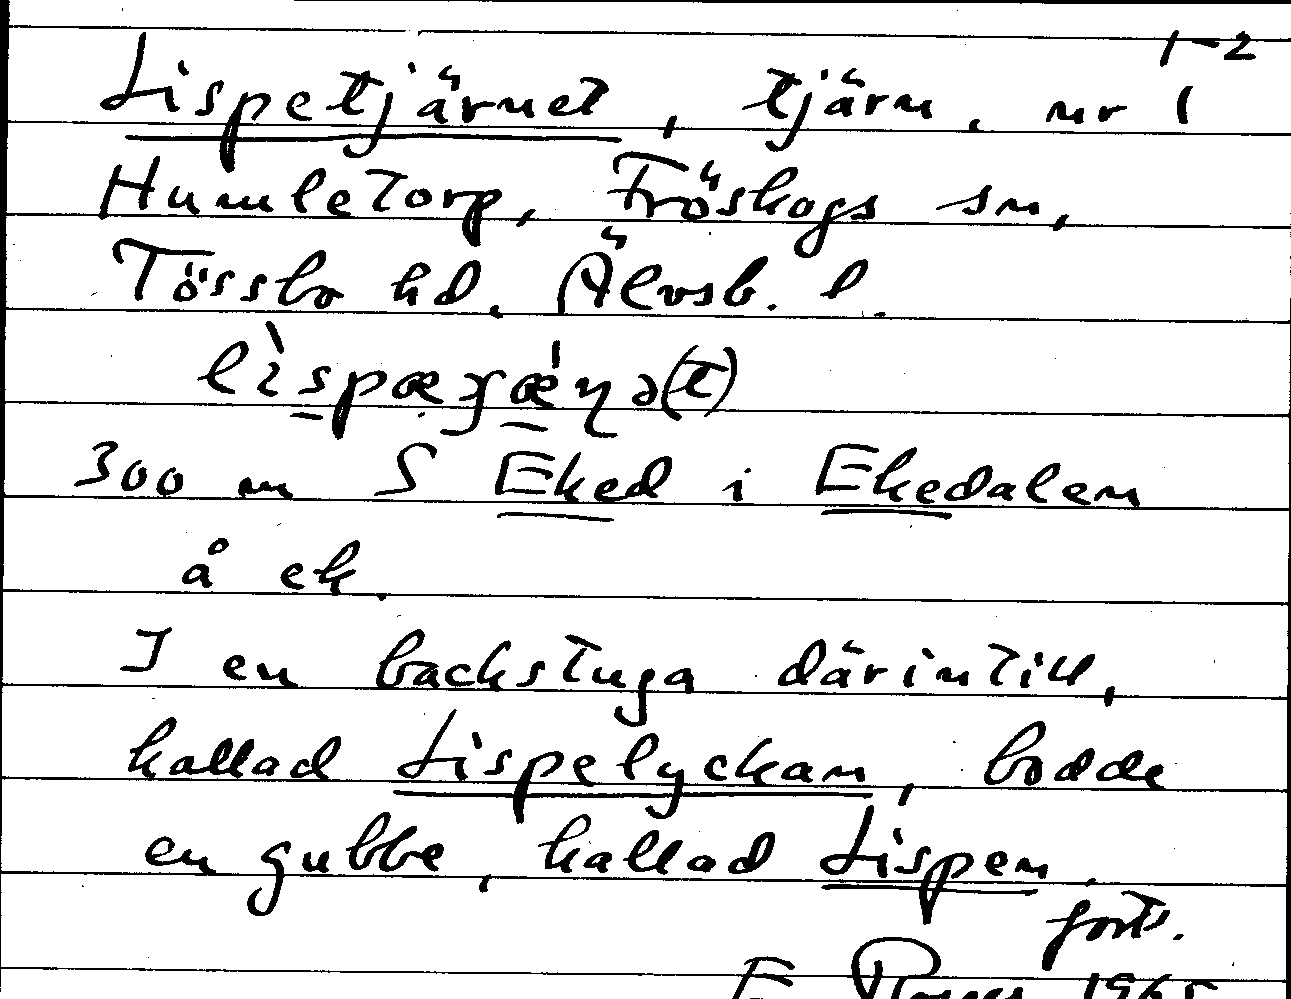 1-2
Lispetjärnet, tjärn, nr 1
Humletorp, Fröskogs sn,
Tössbo hd. Älvsb. l.
300 m S Eked i Ekedalen
å ek.
I en backstuga därintill,
kallad Lispelyckan, bodde
en gubbe, kallad Lispen.
forts.
E. 1965